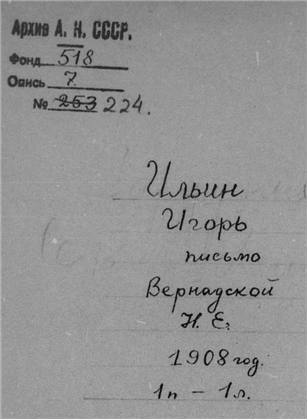 Архив А. Н. СССР.
Фонд 518
Опись 7
№ 253 224.
Ильин
Игорь
письмо
Вернадской
Н. Е.
1908 год.
1п – 1л.